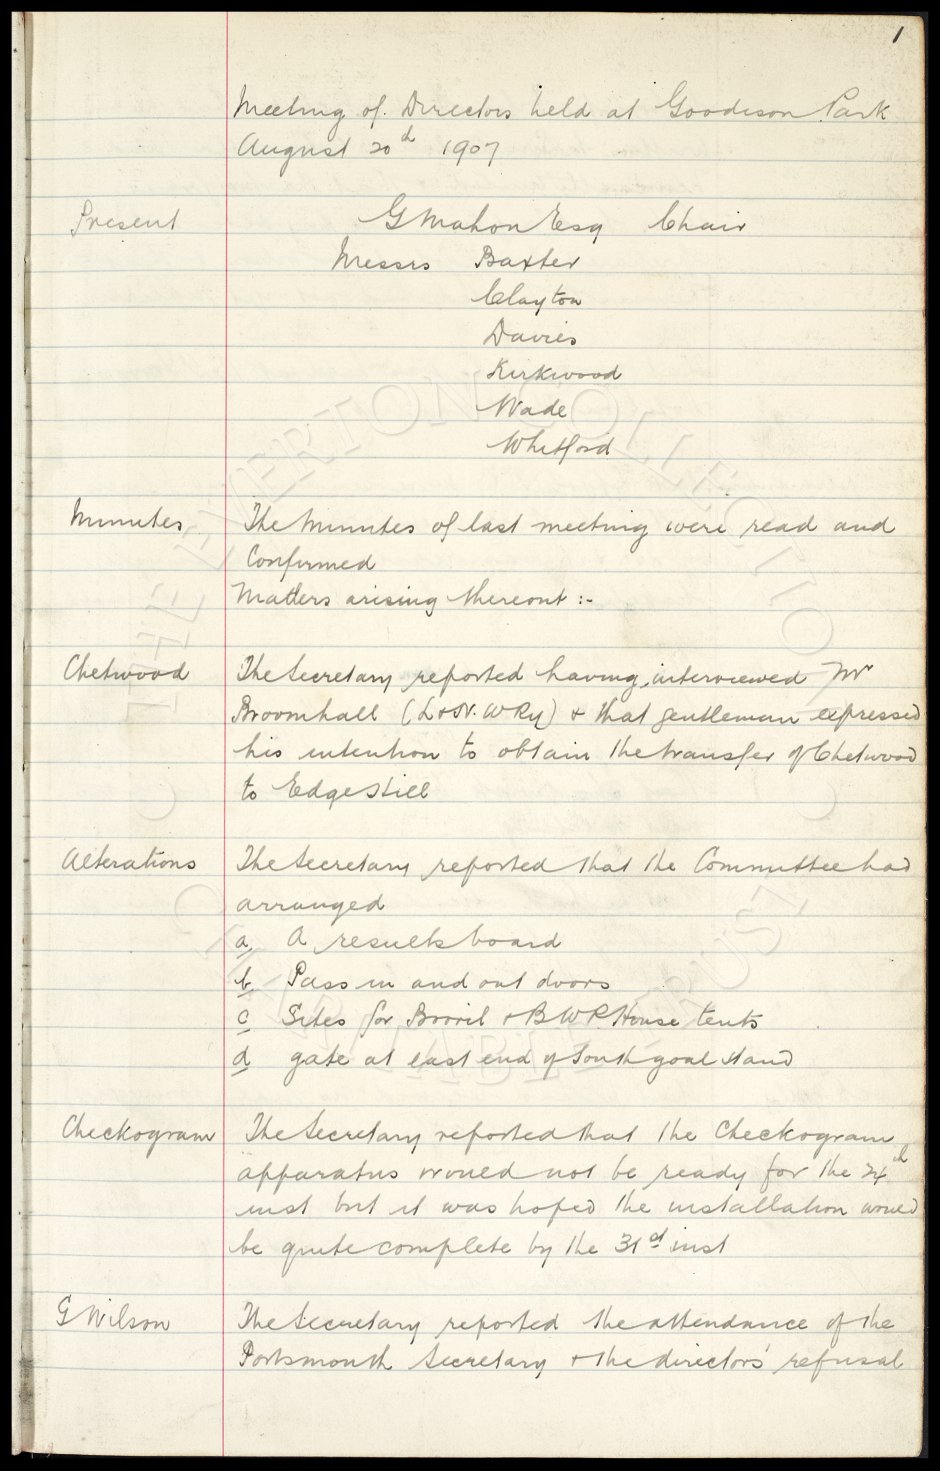 1
Meeting of Directors held at Goodison Park
August 20th 1907
Present G Mahon Esq Chair
Messrs Baxter
Clayton
Davies
Kirkwood
Wade
Whitford
Minutes The Minutes of last meeting were read and
Confirmed
Matters arising thereont :-
Chetwood The Secretary reported having interviewed Mr
Broomhall (L & N. W Ry) & that gentleman expressed
his intention to obtain the transfer of Chetwood
to Edge Hill
Alterations The Secretary reported that the Committee had
arranged
a A results board
b Pass in and out doors
c Sites for Bovril & B W R House tents
d gate at east end of South goal stand
Checkogram The Secretary reported that the Checkogram
apparatus would not be ready for the 24th
inst but it was hoped the installation would
be quite complete by the 31st inst
G Wilson The Secretary reported the attendance of the
Portsmouth Secretary & the directors' refusal
THE EVERTON COLLECTION
CHARITABLE TRUST